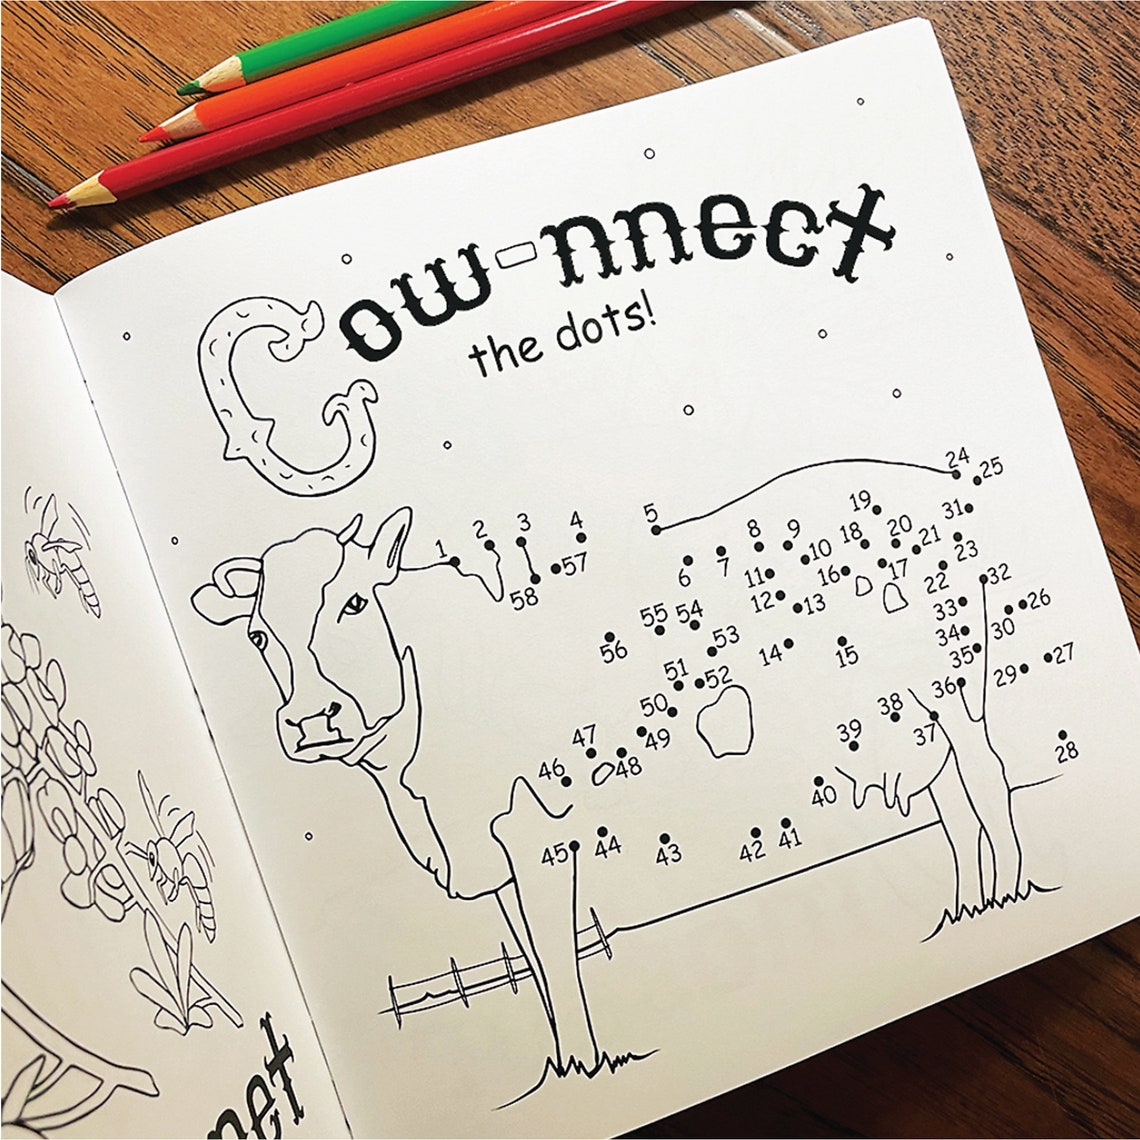 Cow-nnect
the dots!
24
25
19
31
5
2
3
4
8
9
18
20
21
1
10
23
57
7
11
16
17
6
22
32
58
12
13
33
26
55
54
34
30
56
53
14
15
35
27
51
52
36
29
50
38
47
49
39
37
46
48
28
40
45
44
43
42
41